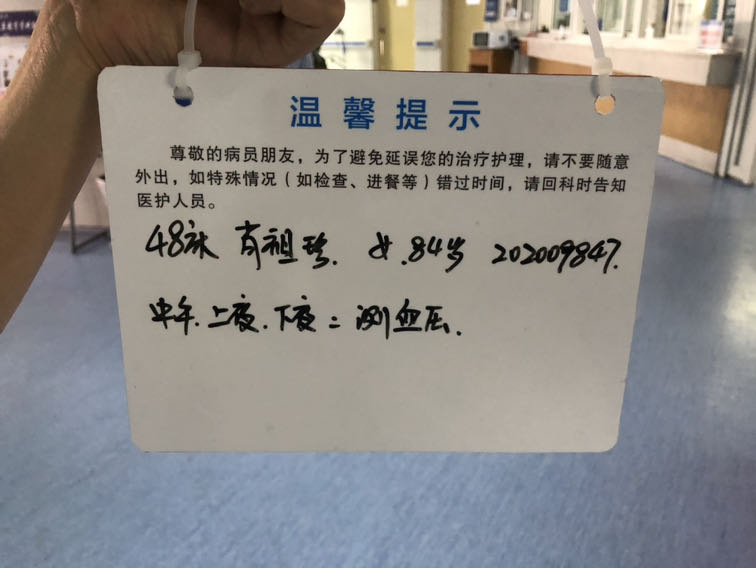 温馨提示
尊敬的病员朋友，为了避免延误您的治疗护理，请不要随意
外出，如特殊情况（如检查、进餐等）错过时间，请回科时告知
医护人员。
48床 肖祖珍. 女.84岁 202009847.
中午.上夜.下夜：测血压.